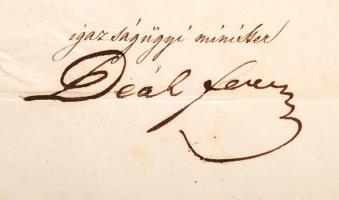 igazságügyi minister
Deák Ferenc